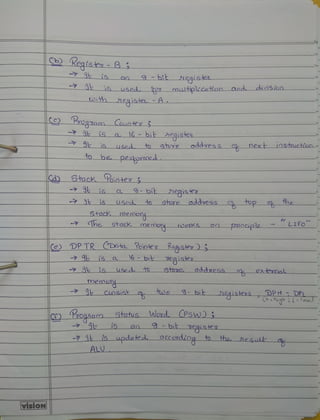 (b) Register-B :
→ It is an 8-bit register
→ It is used for multiplication and division
with register-A.
(c) Program Counter :
→ It is a 16-bit register
→ It is used to store address of next instruction
to be performed.
(d) Stack Pointer :
→ It is a 8-bit register
→ It is used to store address of top of the
stack memory
→ The stack memory works on principle - "LIFO"
(e) DPTR (Data Pointer Register) :
→ It is a 16-bit register
→ It is used to store address of external
memory
→ It consist of two 8-bit registers, DPH & DPL
(f) Program Status Word (PSW) :
→ It is an 8-bit register
→ It is updated according to the result of
ALU
vision